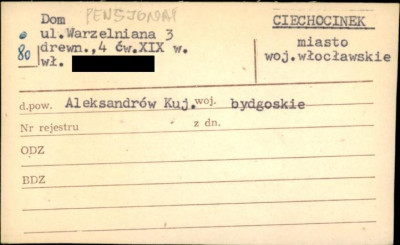 Dom PENSJONAT
ul.Warzelniana 3
drewn.,4 ćw.XIX w.
wł.
80
CIECHOCINEK
miasto
woj.włocławskie
d.pow. Aleksandrów Kuj. woj. bydgoskie
Nr rejestru z dn.
ODZ
BDZ